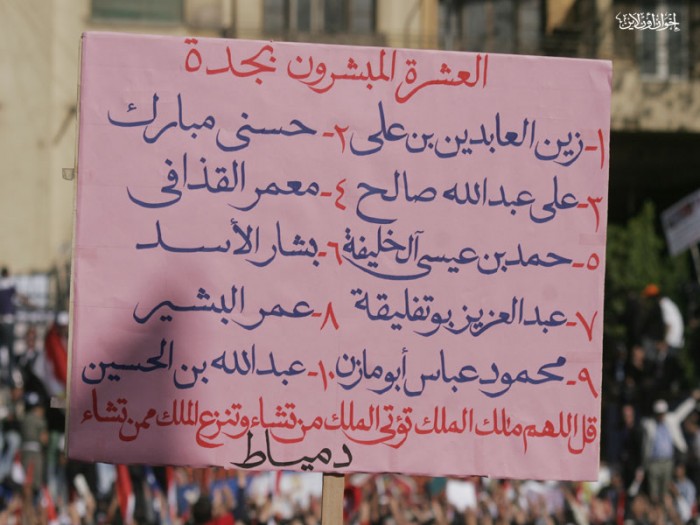 إخوان أون لاين
العشرة المبشرون بجدة
١- زين العابدين بن على ٢- حسنى مبارك
٣- على عبدالله صالح ٤- معمر القذافى
٥- حمد بن عيسى آل خليفة ٦- بشار الأسد
٧- عبدالعزيز بوتفليقة ٨- عمر البشير
٩- محمود عباس أبومازن ١٠- عبدالله بن الحسين
قل اللهم مالك الملك تؤتى الملك من تشاء وتنزع الملك ممن تشاء
دمياط